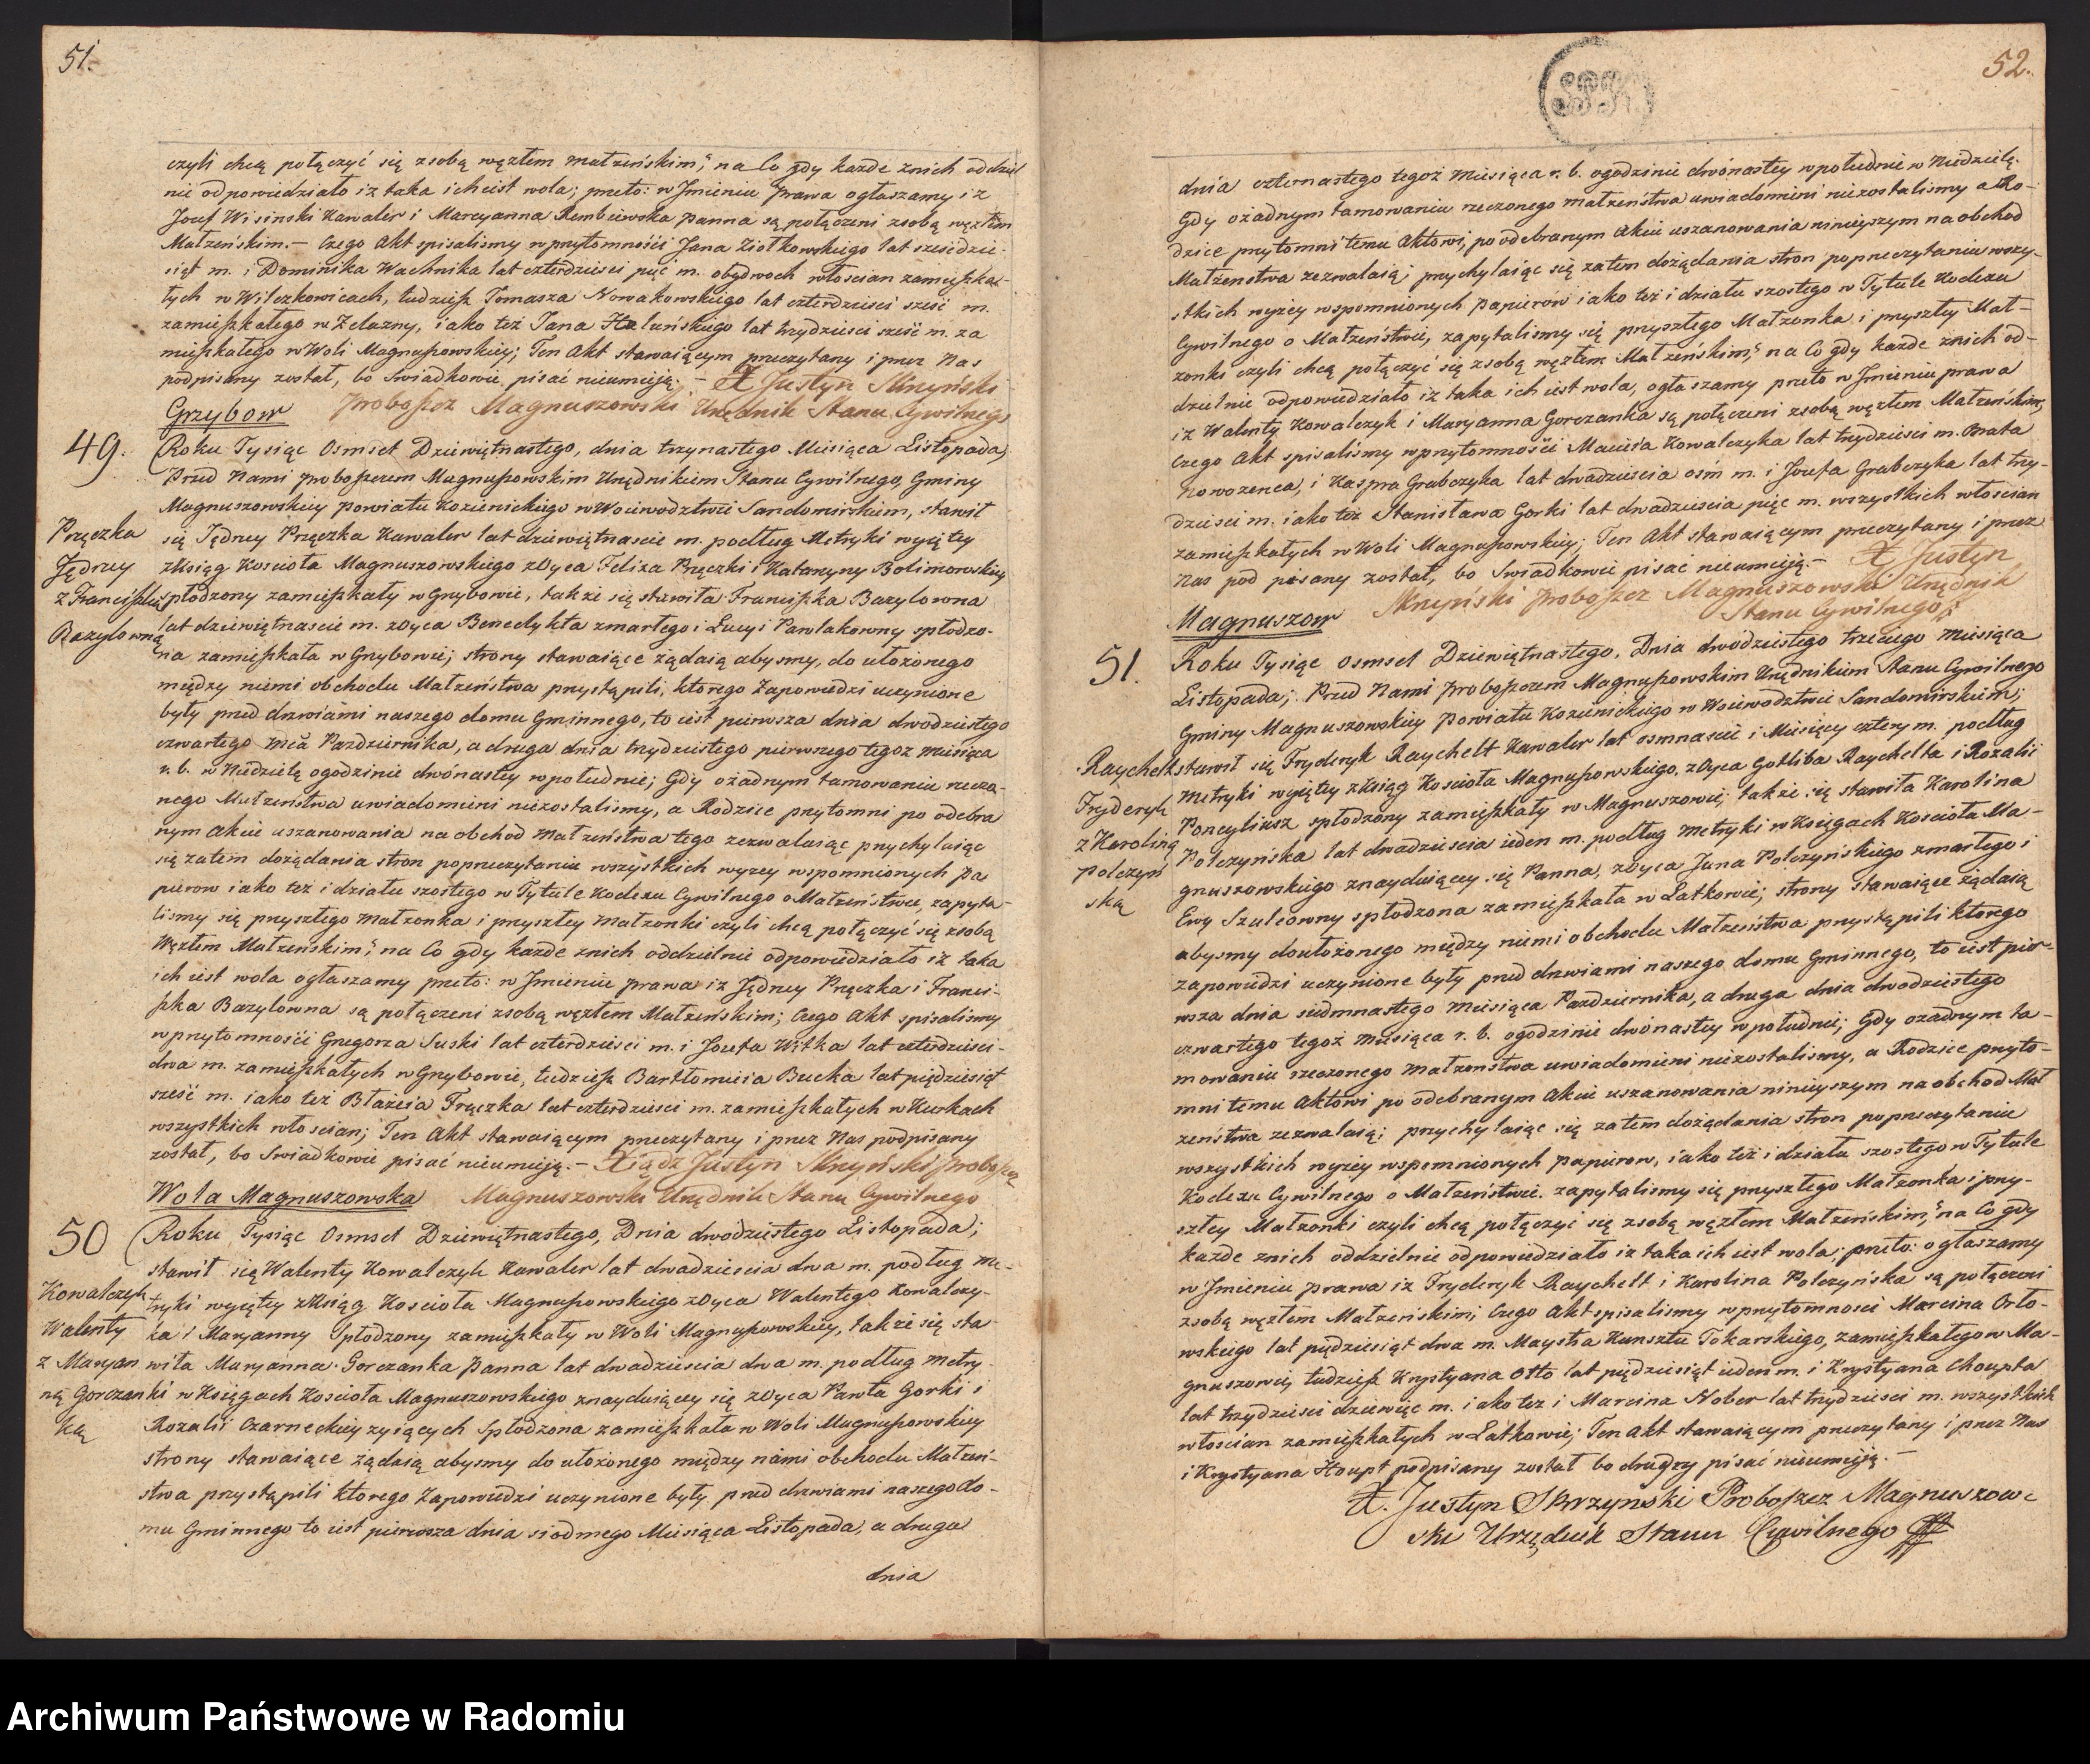 51.
czyli chcą połączyć się zsobą węzłem małżeńskim", na Co gdy każde znich oddziel
nie odpowiedziało iż taka ich iest wola; przeto: w Jmieniu prawa ogłaszamy iż
Jozef Wisinski Kawaler i Marcyanna Rembiewska panna są połączeni zsobą węzłem
Małżeńskim. – Czego Akt spisalismy w przytomności Jana Ziołkowskiego lat sześćdzie-
siąt m. i Dominika Wachnika lat czterdzieści pięć m. obydwoch włościan zamieszka-
łych w Wilczkowicach, tudzież Tomasza Nowakowskiego lat czterdzieści sześć m.
zamieszkałego w Żelazny, iako też Jana Haluńskiego lat trzydzieści sześć m. za
mieszkałego w Woli Magnuszowskiey; Ten Akt stawaiącym przeczytany i przez Nas
podpisany został, bo Swiadkowie pisać nieumieją. – X Justyn Skrzyński
Proboszcz Magnuszowski Urzędnik Stanu Cywilnego
Grzybow
49.
Roku Tysiąc Osmset Dziewiętnastego, dnia trzynastego Miesiąca Listopada,
Przed Nami proboszczem Magnuszowskim Urzędnikiem Stanu Cywilnego, Gminy
Magnuszowskiey powiatu Kozienickiego w Woiewodztwie Sandomirskiem, stawił
Pręczka
Jędrzey
z Franciszką
Bazylowną
się Jędrzey Pręczka Kawaler lat dziewiętnascie m. podług Metryki wyiętey
zksiąg Koscioła Magnuszowskiego z Oyca Felixa Pręczki i Katarzyny Bolimowskiey
płodzony zamieszkały w Grzybowie, także się stawiła Franciszka Bazylowna
lat dziewiętnascie m. z Oyca Benedykta zmarłego i Lucyi Pawlakowny spłodzo-
na zamieszkała w Grzybowie; strony stawaiące żądaią abysmy, do ułożonego
między niemi obchodu Małżeństwa przystąpili, ktorego Zapowiedzi uczynione
były przed drzwiami naszego domu Gminnego, to iest pierwsza dnia dwodziestego
czwartego Mca Pazdziernika, a druga dnia trzydziestego pierwszego tegoż Miesiąca
r. b. w Niedzielę ogodzinie dwónastey wpołudnie; Gdy ożadnym tamowaniu rzeczo-
nego Małżeństwa uwiadomieni niezostalismy, a Rodzice przytomni po odebra
nym Akcie uszanowania na obchod Małżeństwa tego zezwalaiąc przychylaiąc
się zatem dożądania stron poprzeczytaniu wszystkich wyzey wspomnionych pa
pierow iako też i działu szostego w Tytule Kodexu Cywilnego o Małżeństwie, zapyta-
lismy się przyszłego Małżonka i przyszłey Małżonki czyli chcą połączyć się zsobą
Węzłem Małżeńskim", na Co gdy każde znich oddzielnie odpowiedziało iż taka
ich iest wola ogłaszamy przeto: w Jmieniu prawa iż Jędrzey Pręczka i Franci-
szka Bazylowna są połączeni zsobą węzłem Małżeńskim; Czego Akt spisalismy
wprzytomności Grzegorza Suski lat czterdziesci m. i Jozefa Witka lat czterdziesci-
dwa m. zamieszkałych w Grzybowie, tudzież Bartłomieia Bucka lat pięćdziesiąt
sześć m. iako też Błażeia Fręczka lat czterdziesci m. zamieszkałych w Kurkach
wszystkich włoscian; Ten Akt stawaiącym przeczytany i przez Nas podpisany
został, bo Swiadkowie pisać nieumieją. – Xiądz Justyn Skrzyński Proboszcz
Magnuszowski Urzędnik Stanu Cywilnego
Wola Magnuszowska
50
Roku Tysiąc Osmset Dziewiętnastego, Dnia dwodziestego Listopada;
stawił się Walenty Kowalczyk Kawaler lat dwadziescia dwa m. podług me-
Kowalczyk
Walenty
z Maryan
ną Gorczan
ką
tryki wyiętey zksiąg Koscioła Magnuszowskiego z Oyca Walentego Kowalczy-
ka i Maryanny Spłodzony zamieszkały w Woli Magnuszowskiey, także się sta-
wiła Maryanna Gorczanka Panna lat dwadziescia dwa m. podług Metry-
ki w Księgach Koscioła Magnuszowskiego znayduiącey się z Oyca Pawła Gorki i
Rozalii Czarneckiey zyiących Spłodzona zamieszkała w Woli Magnuszowskiey
strony stawaiące żądaią abysmy do ułożonego między niemi obchodu Małżeń-
stwa przystąpili ktorego Zapowiedzi uczynione były przed drzwiami naszego do-
mu Gminnego to iest pierwsza dnia siodmego Miesiąca Listopada, a druga
dnia
52.
dnia czternastego tegoż Miesiąca r. b. ogodzinie dwónastey wpołudnie w Niedzielę.
Gdy ożadnym tamowaniu rzeczonego małżeństwa uwiadomieni niezostalismy a Ro-
dzice przytomni temu Aktowi, po odebranym Akcie uszanowania ninieyszym na obchod
Małżenstwa zezwalaią; przychylaiąc się zatem dożądania stron poprzeczytaniu wszy-
stkich wyżey wspomnionych papierow iako też i działu szostego w Tytule Kodexu
Cywilnego o Małżeństwie, zapytalismy się przyszłego Małżonka i przyszłey Mał-
żonki czyli chcą połączyć się zsobą węzłem Małżeńskim", na Co gdy każde znich od-
dzielnie odpowiedziało iż taka ich iest wola, ogłaszamy przeto w Jmieniu prawa
iż Walenty Kowalczyk i Maryanna Gorczanka są połączeni zsobą węzłem Małżeńskim,
Czego Akt spisalismy wprzytomności Macieia Kowalczyka lat trzydziesci m. Brata
Nowozenca, i Kaspra Grabczyka lat dwadziescia osm m. i Jozefa Grabczyka lat trzy-
dziesci m. iako też Stanisława Gorki lat dwadziescia pięc m. wszystkich włoscian
zamieszkałych w Woli Magnuszowskiey; Ten Akt stawaiącym przeczytany i przez
Nas pod pisany został, bo Swiadkowie pisać nieumieją. – X Justyn
Skrzyński Proboszcz Magnuszowski Urzędnik
Stanu Cywilnego
Magnuszow
51.
Roku Tysiąc osmset Dziewiętnastego, Dnia dwodziestego trzeciego Miesiąca
Listopada; Przed Nami proboszczem Magnuszowskim Urzędnikiem Stanu Cywilnego
Gminy Magnuszowskiey powiatu Kozienickiego w Woiewodztwie Sandomirskiem;
Raychelt
Fryderyk
z Karoliną
Polczyn
ską
stawił się Fryderyk Raychelt Kawaler lat osmnascie i Miesięcy cztery m. podług
Metryki wyiętey zksiąg Koscioła Magnuszowskiego, z Oyca Gotliba Raychelta i Rozalii
Poncyliusz spłodzony zamieszkały w Magnuszowie; także się stawiła Karolina
Polczyńska lat dwadziescia ieden m. podług Metryki w Księgach Koscioła Ma-
gnuszowskiego znayduiącey się Panna, z Oyca Jana Polczyńskiego zmarłego i
Ewy Szulcowny spłodzona zamieszkała w Latkowie; strony stawaiące żądaią
abysmy doułożonego między niemi obchodu Małżeństwa przystąpili ktorego
zapowiedzi uczynione były przed drzwiami naszego domu Gminnego, to iest pier-
wsza dnia siedmnastego Miesiąca Pazdziernika, a druga dnia dwodziestego
czwartego tegoż Miesiąca r. b. ogodzinie dwónastey wpołudnie; Gdy ożadnym ta-
mowaniu rzeczonego Małżenstwa uwiadomieni niezostalismy, a Rodzice przyto-
mni temu Aktowi po odebranym Akcie uszanowania ninieyszym na obchod Mał
żeństwa zezwalaią; przychylaiąc się zatem dożądania stron poprzeczytaniu
wszystkich wyżey wspomnionych papierow, iako też i działu szostego w Tytule
Kodexu Cywilnego o Małżeństwie. zapytalismy się przyszłego Małżonka i przy-
szłey Małżonki czyli chcą połączyć się zsobą węzłem Małżeńskim," na Co gdy
każde znich oddzielnie odpowiedziało iż taka ich iest wola; przeto: ogłaszamy
w Jmieniu prawa iż Fryderyk Raychelt i Karolina Polczyńska są połączeni
zsobą węzłem Małżeńskim; Czego Akt spisalismy wprzytomnosci Marcina Orło-
wskiego lat pięćdziesiąt dwa m. Maystra Kunsztu Tokarskiego, zamieszkałego w Ma-
gnuszowie, tudzież Krystyana Otto lat pięćdziesiąt ieden m. i Krystyana Choupta
lat trzydziesci dziewięc m. iako też i Marcina Nober lat trzydziesci m. wszystkich
włoscian zamieszkałych w Latkowie; Ten Akt stawaiącym przeczytany i przez Nas
i Krystyana Houpt podpisany został bo drugzy pisać nieumieją. –
X. Justyn Skrzynski Proboszcz Magnuszow
ski Urzędnik Stanu Cywilnego
Archiwum Państwowe w Radomiu